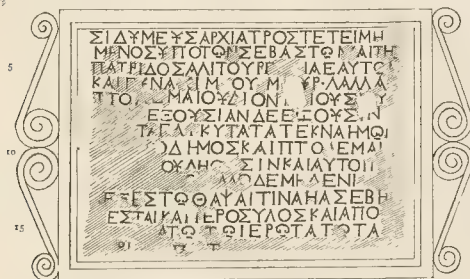 ΣΙΔΥΜΕΥΣΑΡΧΙΑΤΡΟΣΤΕΤΕΙΜΗ
ΜΕΝΟΣΥΠΟΤΩΝΣΕΒΑΣΤΩΝΚΑΙΤΗ
5 ΠΑΤΡΙΔΟΣΑΛΙΤΟΥΡΓ ΙΑΕΑΥΤΩ
ΚΑΙΓΥΝΑ ΙΜ ΟΥ Μ ΥΡ·ΛΑΛΛΑ
ΠΤΟ ΜΑΙΟΥΔΙΟΝ ΙΟΥΣ Υ
ΕΞΟΥΣΙΑΝΔΕΕΞΟΥΣΙΝ
ΤΑΓΛΥΚΥΤΑΤΑΤΕΚΝΑΗΜΩ
10 ΟΔΗΜΟΣΚΑΙΠΤΟΛΕΜΑΙ
ΟΥΛΗΘ ΣΙΝΚΑΙΑΥΤΟΙ
ΛΛΟΔΕΜΗΔΕΝΙ
ΕΞΕΣΤΩΘΑΨΑΙΤΙΝΑΗΑΣΕΒΗ
ΕΣΤΑΙΚΑΙΙΕΡΟΣΥΛΟΣΚΑΙΑΠΟ
15 ΑΤΩ ΤΩΙΕΡΩΤΑΤΩΤΑ